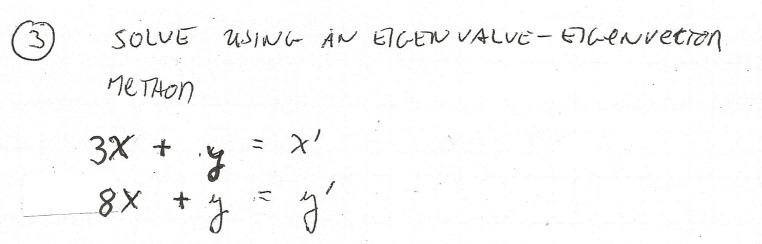 3 SOLVE USING AN EIGENVALUE-EIGENVECTOR
METHOD
3x + y = x'
8x + y = y'